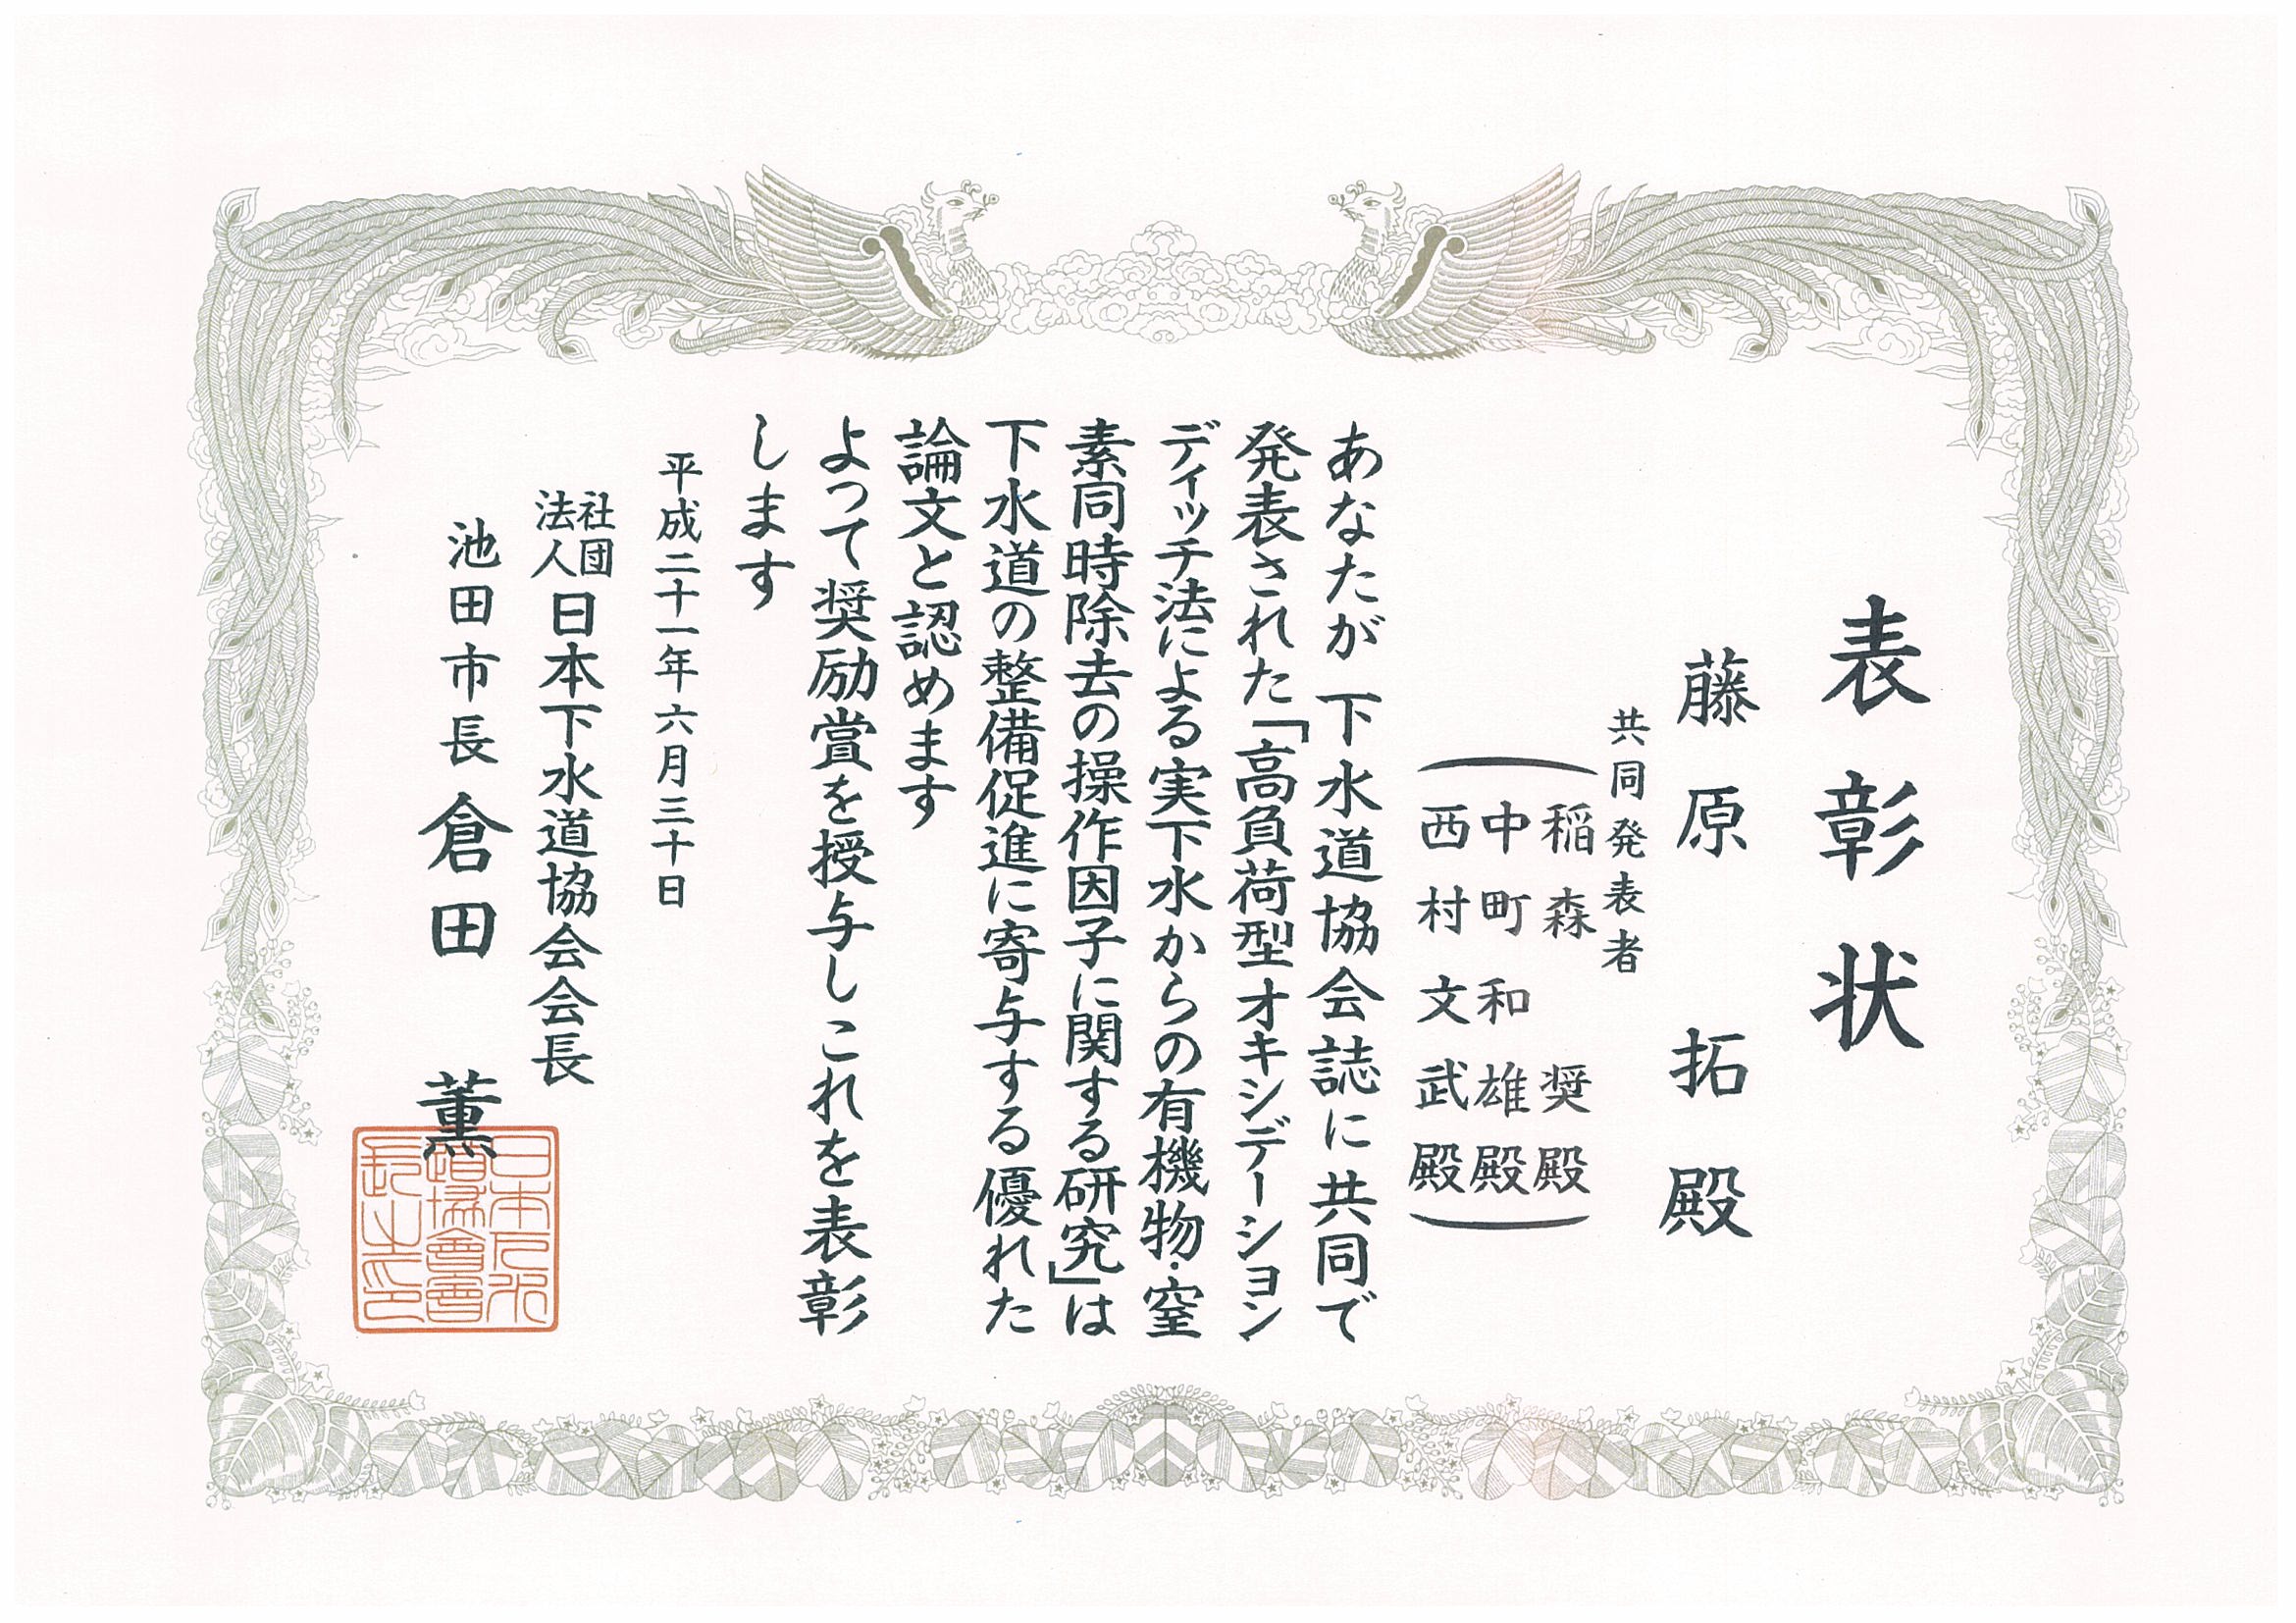 表彰状
藤原 拓 殿
共同発表者
稲森 奨 殿
中町 和雄 殿
西村 文武 殿
あなたが下水道協会誌に共同で
発表された「高負荷型オキシデーション
ディッチ法による実下水からの有機物・窒
素同時除去の操作因子に関する研究」は
下水道の整備促進に寄与する優れた
論文と認めます
よって奨励賞を授与しこれを表彰
します
平成二十一年六月三十日
社団法人 日本下水道協会会長
池田市長 倉田 薫
日本下水
道協會會
長之印